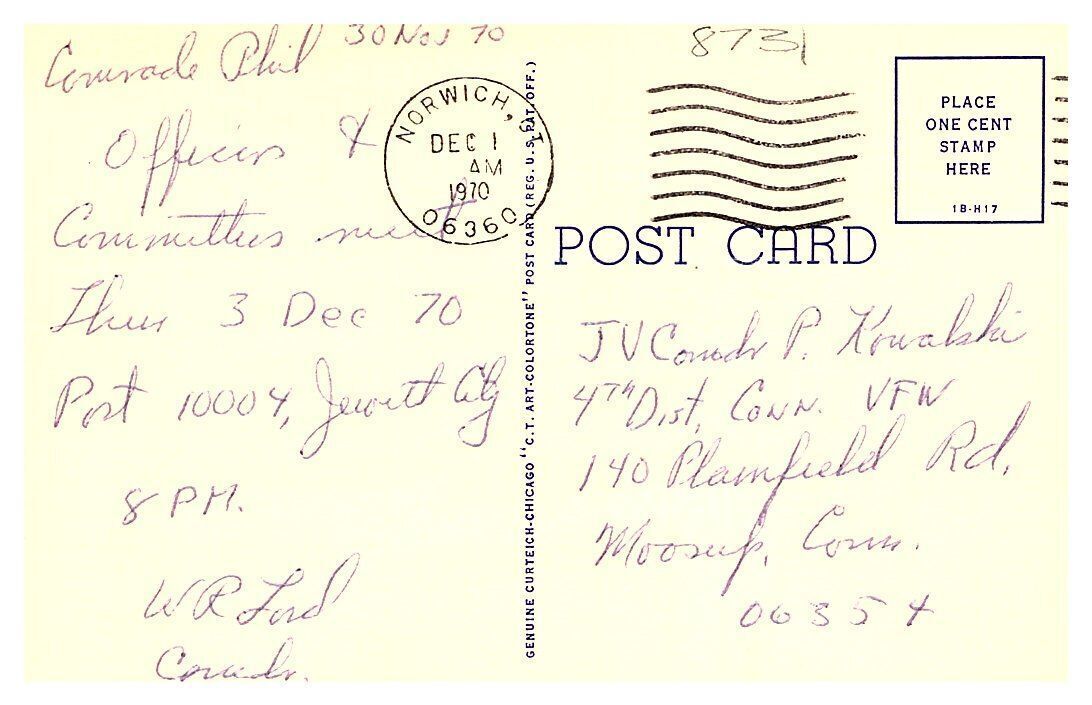 Comrade Phil 30 Nov 70
Officers &
Committees meet
Thur 3 Dec 70
Post 10004, Jewett City
8 PM.
W R Ford
Comdr.
NORWICH, CT
DEC 1
AM
1970
06360
GENUINE CURTEICH-CHICAGO "C.T. ART-COLORTONE" POST CARD (REG. U.S. PAT. OFF.)
8731
PLACE
ONE CENT
STAMP
HERE
1B-H17
POST CARD
JV Comdr P. Kowalski
4TH Dist, Conn. VFW
140 Plainfield Rd,
Moosup, Conn.
06354